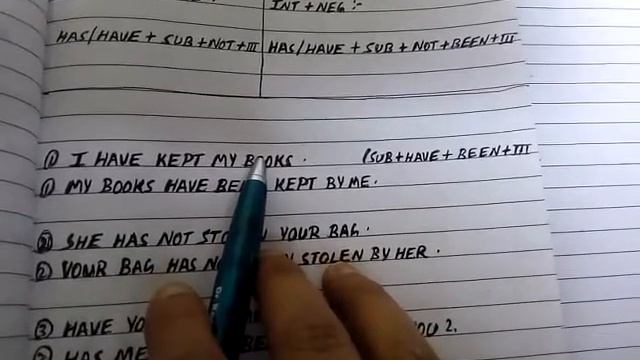 INT + NEG :-
HAS/HAVE + SUB + NOT + III HAS/HAVE + SUB + NOT + BEEN + III
① I HAVE KEPT MY BOOKS. (SUB + HAVE + BEEN + III
① MY BOOKS HAVE KEPT BY ME.
② SHE HAS NOT YOUR BAG.
② YOUR BAG HAS STOLEN BY HER.
③ HAVE
② HAS